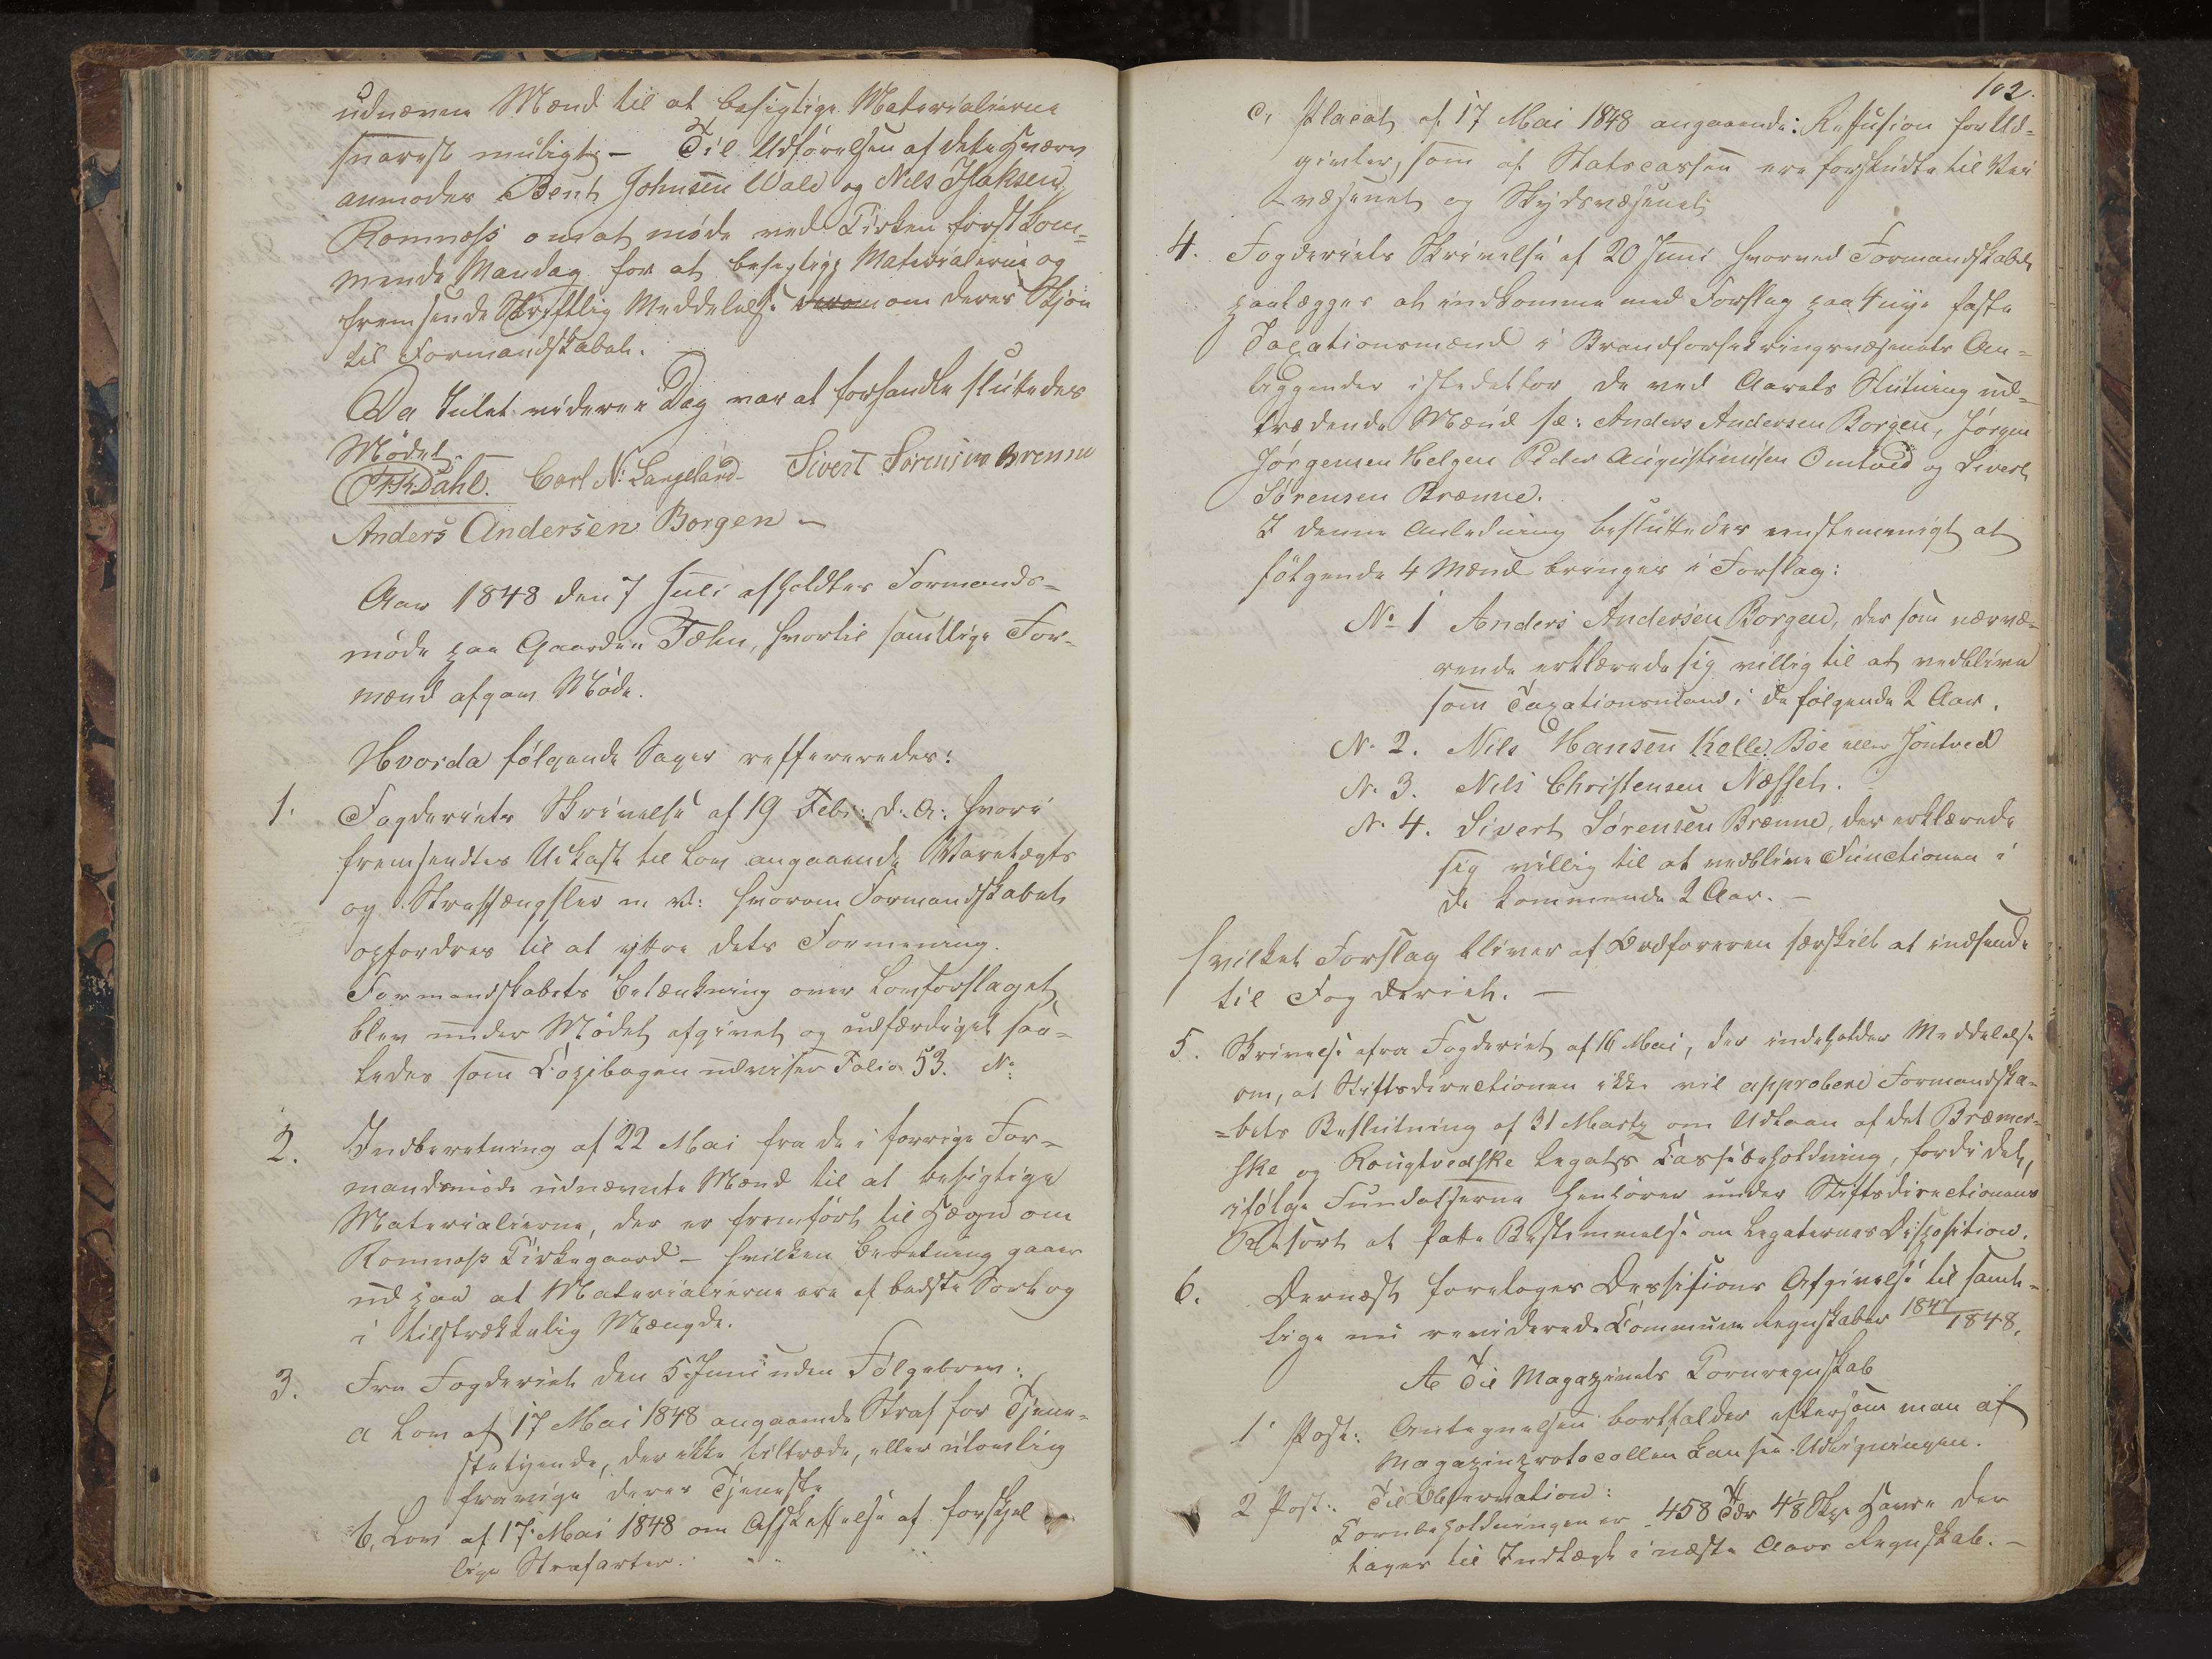 udnævne Mænd til at besigtige Materialierne
snarest muligt – Til Udførelsen af dette Hverv
anmodes Bent Johnsen Vale og Nils Isaksen
Romnæss om at møde ved Kirken førstkom=
mende Mandag for at besigtige Materialierne og
fremsende Skriftlig Meddelelse om deres Skjøn
til Formandskabet.
Da Intet videre i Dag var at forhandle sluttedes
Mødet.
Dahl. Carl N: Langeland – Sivert Sørensen Brenne
Anders Andersen Borgen –
Aar 1848 den 7 Juli afholdtes Formands=
møde paa Gaarden Fæhn, hvortil samtlige For-
mænd afgav Møde.
Hvorda følgende Sager reffereredes:
1. Fogderiets Skrivelse af 19 Febr: d: A: hvori
fremsendtes Udkast til Lov angaaende Varetægts
og Straffængsler m. v: hvorom Formandskabet
opfordres til at yttre dets Formening.
Formandskabets Betænkning over Lovforslaget
blev under Mødet afgivet og udfærdiget saa=
ledes som Copibogen udviser Folio 53. No
2. Indberetning af 22 Mai fra de i forrige For=
mandsmøde udnævnte Mænd til at besigtige
Materialierne, der er fremført til Hægn om
Romnæss Kirkegaard – hvilken Beretning gaaer
ud paa at Materialierne ere af bedste Sort og
i tilstrækkelig Mængde.
3. Fra Fogderiet den 5 Juni uden Følgebrev:
a Lov af 17 Mai 1848 angaaende Straf for Tjene=
stetyende, der ikke tiltræde, eller ulovlig
fravige deres Tjeneste
b. Lov af 17 Mai 1848 om Afskaffelse af forskjel
lige Strafarter.
102.
c, Placat af 17 Mai 1848 angaaende: Reffusion for Ud=
givter, som af Statscassen ere forskudte til Vei
væsenet og Skydsvæsenet
4. Fogderiets Skrivelse af 20 Juni hvorved Formandskabet
paalægges at indkomme med Forslag paa 4 nye faste
Taxationsmænd i Brandforsikringsvæsenets An=
liggender istedetfor de ved Aarets Slutning ud=
trædende Mænd sc: Anders Andersen Borgen, Jørgen
Jørgensen Helgen Peder Augustinusen Omtved og Sivert
Sørensen Brænne.
I denne Anledning besluttedes eenstemmigt at
følgende 4 Mænd bringes i Forslag:
No 1 Anders Andersen Borgen, der som nærvæ=
rende erklærede sig villig til at vedblive
som Taxationsmand i de følgende 2 Aar.
No 2. Nils Hansen Bøe eller Jontved
No 3. Nils Christensen Næsset.
No 4. Sivert Sørensen Brænne, der erklærede
sig villig til at vedblive Functionen i
de kommende 2 Aar. –
hvilket Forslag bliver af Ordføreren særskilt at indsende
til Fogderiet. –
5. Skrivelse fra Fogderiet af 16 Mai, der indeholder Meddelelse
om, at Stiftsdirectionen ikke vil approbere Formandska-
=bets Beslutning af 31 Marts om Udlaan af det Bræmer=
ske og Rougtvedske Legats Cassebeholdning, fordi det,
ifølge Fundatserne henhører under Stiftsdirectionens
Resort at fatte Bestemmelse om Legaternes Disposition.
6. Dernæst foretoges Dessisions Afgivelse til samt=
lige nu reviderede Commune Regnskaber 1847/1848.
A Til Magazinets Kornregnskab
1 Post: Antegnelsen bortfalder eftersom man af
Magazinprotocollen kan see Udligningen.
2 Post: Til Observation:
Kornbeholdningen er 458 Tdr 4 1/8 Skp Havre der
tages til Indtægt i næste Aars Regnskab. –